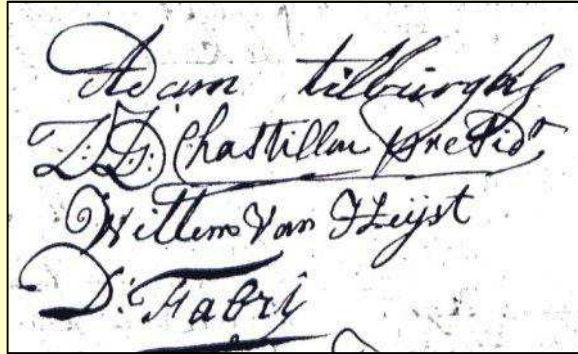 Adam tilburghs
L: D: Chastillon presid^r
Willem Van Heijst
D: Fabrÿ